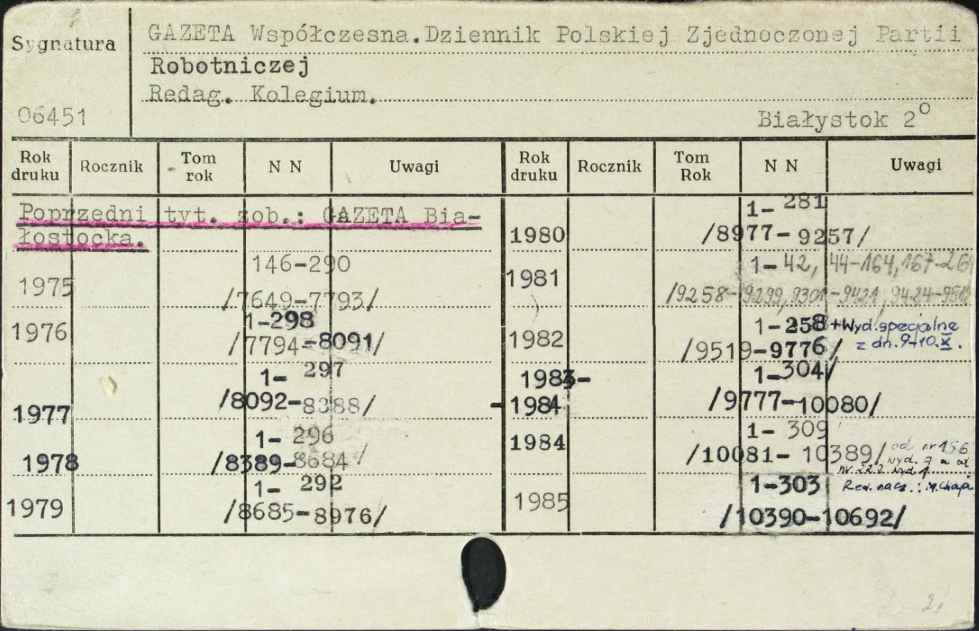 Sygnatura
06451
GAZETA Współczesna.Dziennik Polskiej Zjednoczonej Partii
Robotniczej
Redag. Kolegium.
Białystok 2°
Rok druku Rocznik Tom rok N N Uwagi Rok druku Rocznik Tom Rok N N Uwagi
Poprzedni tyt. zob.: GAZETA Bia-
łostocka.
1975 146-290
/7649-7793/
1976 1-298
/7794-8091/
1977 1- 297
/8092-8388/
1978 1- 296
/8389-8684/
1979 1- 292
/8685-8976/
1980 1- 281
/8977-9257/
1981 1-42, 44-164, 167-
/9258-9299, 9301-9421, 9424-
1982 1-258 +Wyd. specjalne
z dn. 9-10.X.
/9519-9776/
1983-
-1984 1-304/
/9777-10080/
1984 1- 309
/10081- 10389/ od nr 156
wyd.
1985 1-303 Red. nacz.:
/10390-10692/
2,